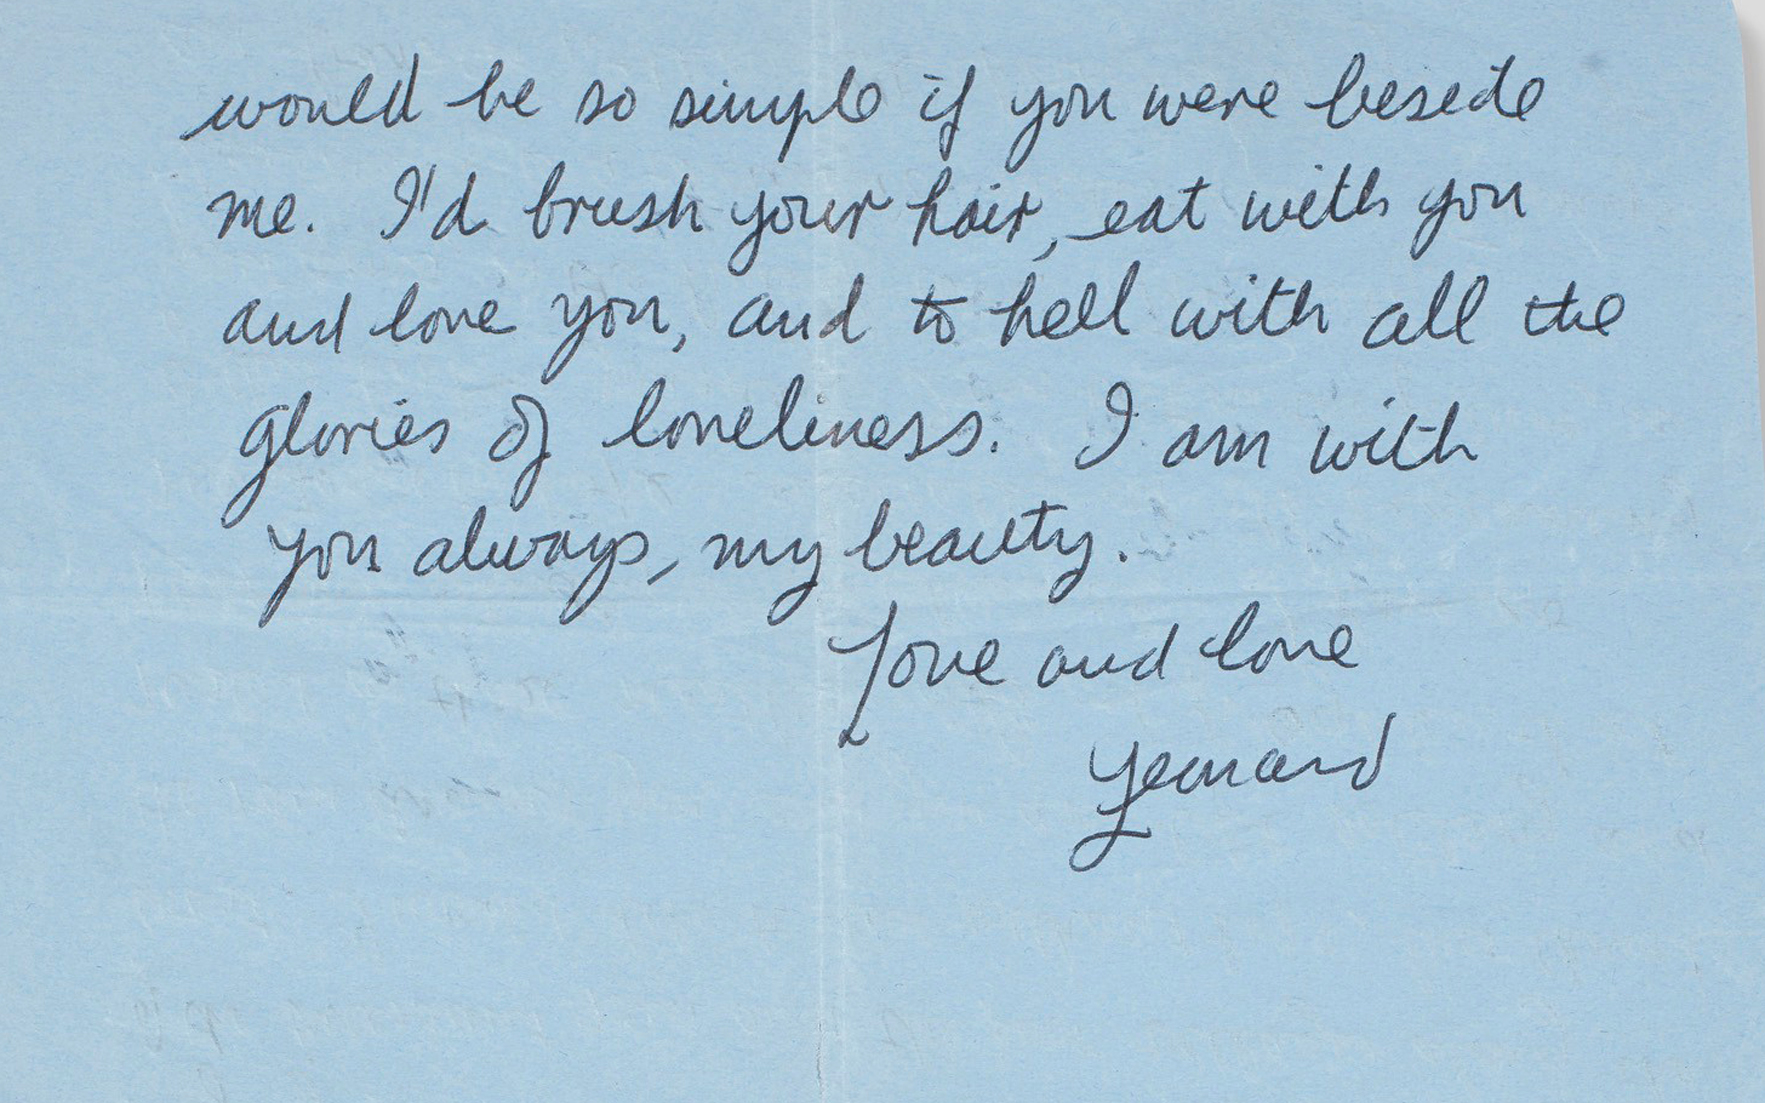 would be so simple if you were beside
me. I'd brush your hair, eat with you
and love you, and to hell with all the
glories of loneliness. I am with
you always, my beauty.
Love and love
Leonard